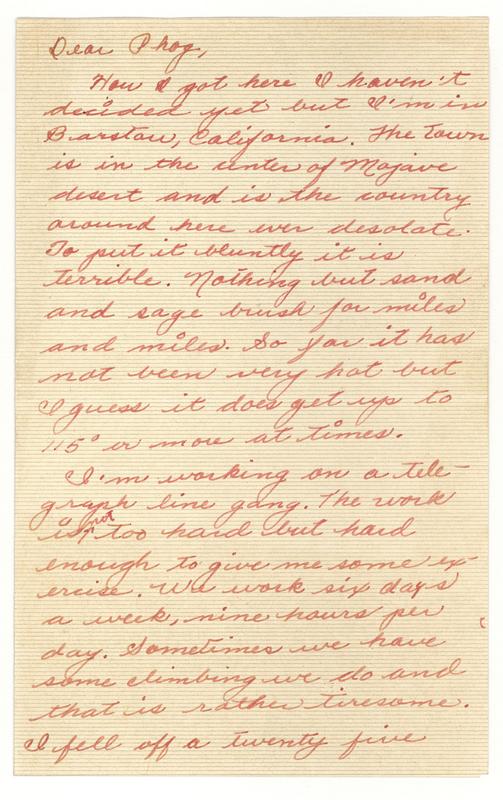 Dear Phog,
How I got here I haven't
decided yet but I'm in
Barstow, California. The town
is in the center of Mojave
desert and is the country
around here ever desolate.
To put it bluntly it is
terrible. Nothing but sand
and sage brush for miles
and miles. So far it has
not been very hot but
I guess it does get up to
115° or more at times.
I'm working on a tele-
graph line gang. The work
is not too hard but hard
enough to give me some ex-
ercise. We work six days
a week, nine hours per
day. Sometimes we have
some climbing we do and
that is rather tiresome.
I fell off a twenty five